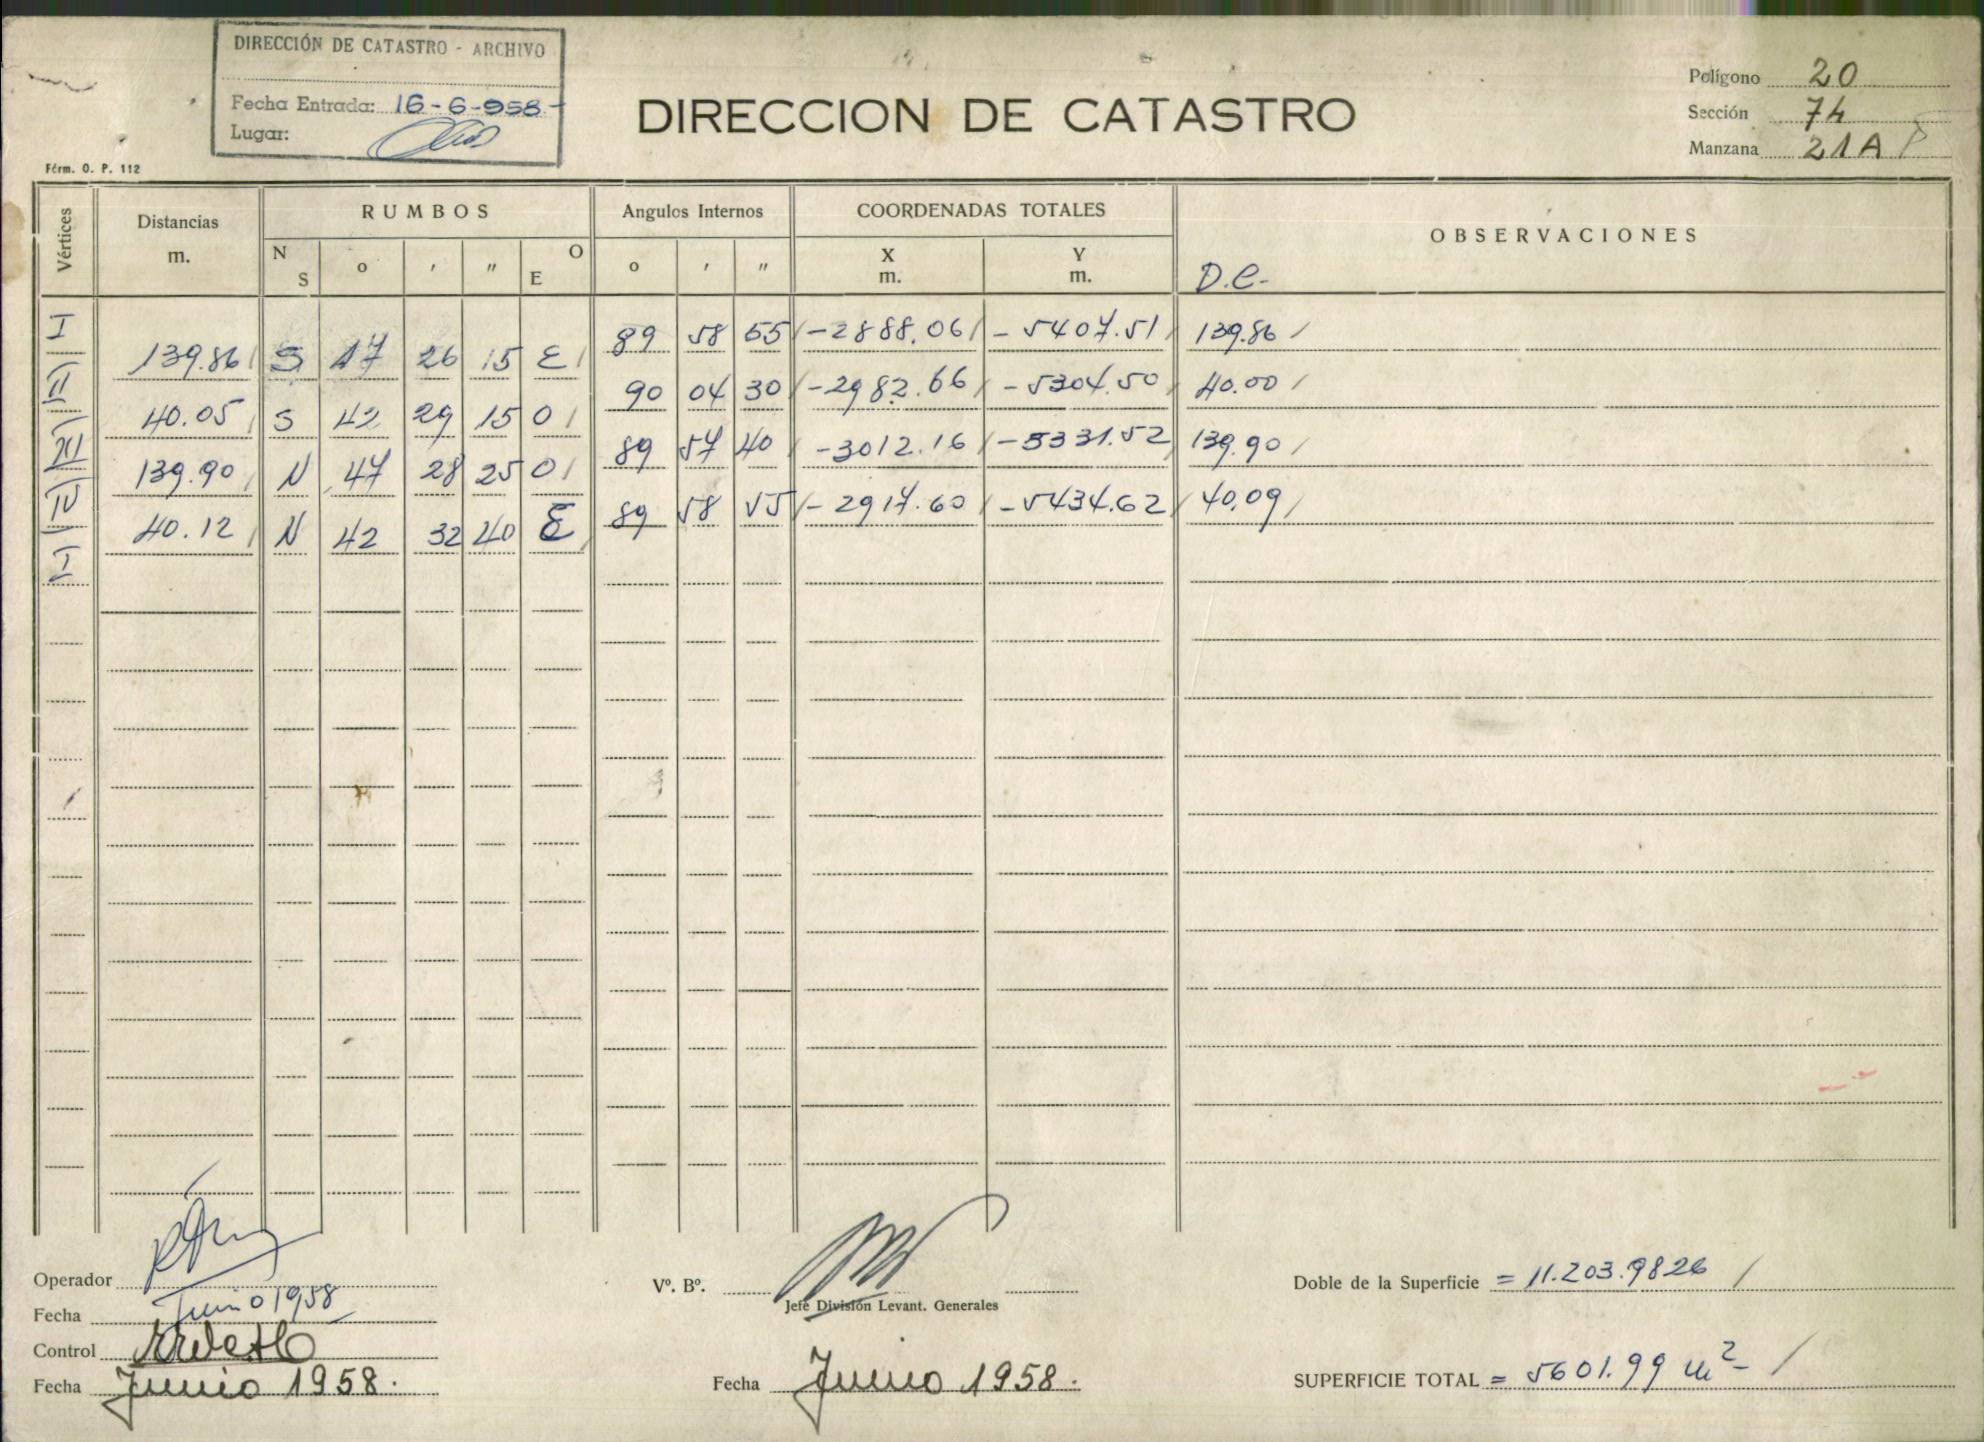 DIRECCIÓN DE CATASTRO - ARCHIVO
Fecha Entrada: 16-6-958-
Lugar:
DIRECCION DE CATASTRO
Polígono 20
Sección 74
Manzana 21A
Fórm. O. P. 112
Vértices Distancias m. RUMBOS Angulos Internos COORDENADAS TOTALES OBSERVACIONES
N S o ' " O E o ' " X m. Y m. D.C.-
I 89 58 55 -2888.06 -5407.51 139.86
139.86 S 47 26 15 E
II 90 04 30 -2982.66 -5304.50 40.00
40.05 S 42 29 15 O
III 89 57 40 -3012.16 -5331.52 139.90
139.90 N 47 28 25 O
IV 89 58 55 -2917.60 -5434.62 40.09
40.12 N 42 32 40 E
I
Operador
Fecha Junio 1958
Control
Fecha Junio 1958.
Vº. Bº.
Jefe División Levant. Generales
Fecha Junio 1958.
Doble de la Superficie = 11.203.9826
SUPERFICIE TOTAL = 5601.99 m2-